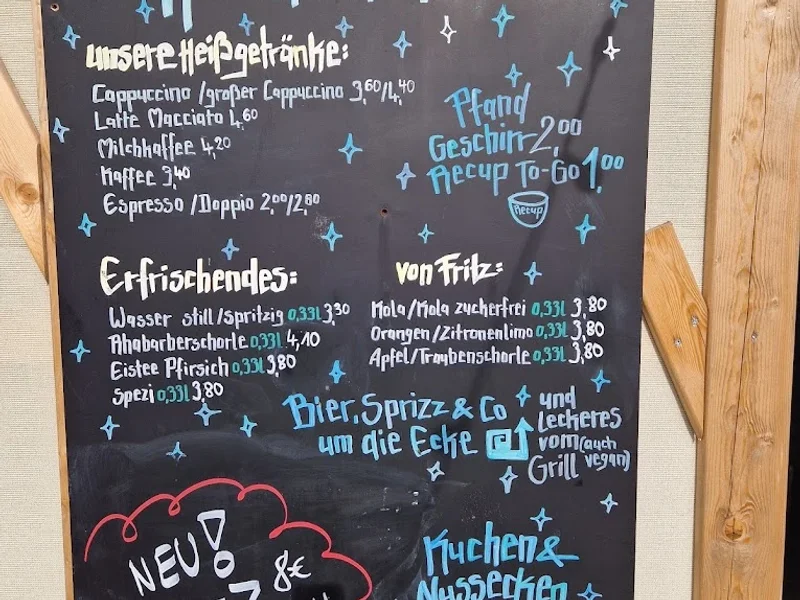 unsere Heißgetränke:
Cappuccino /großer Cappuccino 3,60/4,40
Latte Macciato 4,60
Milchkaffee 4,20
Kaffee 3,40
Espresso /Doppio 2,00/2,80
Pfand
Geschirr 2,00
Recup To-Go 1,00
Recup
Erfrischendes:
Wasser still/spritzig 0,33l 3,30
Rhabarberschorle 0,33l 4,10
Eistee Pfirsich 0,33l 3,80
Spezi 0,33l 3,80
von Fritz:
Kola/Kola zuckerfrei 0,33l 3,80
Orangen/Zitronenlimo 0,33l 3,80
Apfel/Traubenschorle 0,33l 3,80
Bier, Sprizz & Co
um die Ecke
und
leckeres
vom (auch
Grill vegan)
NEU!
8€
Kuchen &
Nussecken